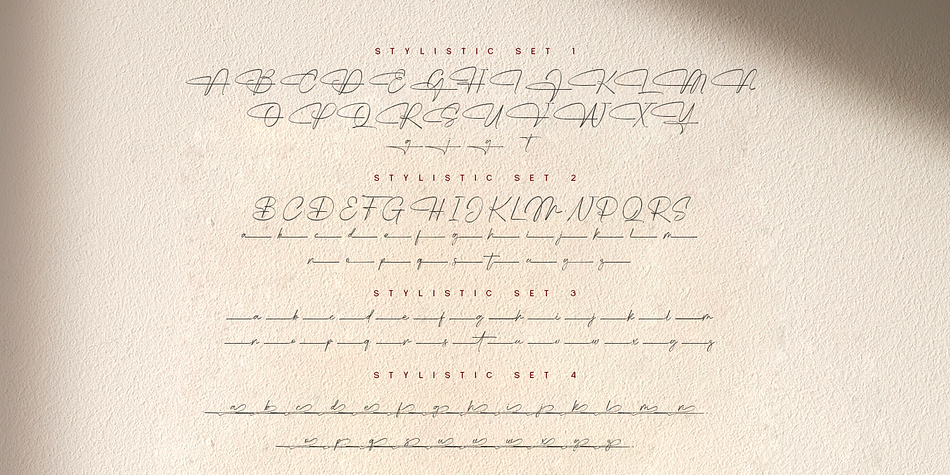 STYLISTIC SET 1
A B C D E G H I J K L M N
O P Q R S U V W X Y
g j y t
STYLISTIC SET 2
B C D E F G H I J K L M N P Q R S
a b c d e f g h i j k l m
n o p q s t u y z
STYLISTIC SET 3
a b c d e f g h i j k l m
n o p q r s t u v w x y z
STYLISTIC SET 4
a b c d e f g h i j k l m n
o p q s u v w x y z